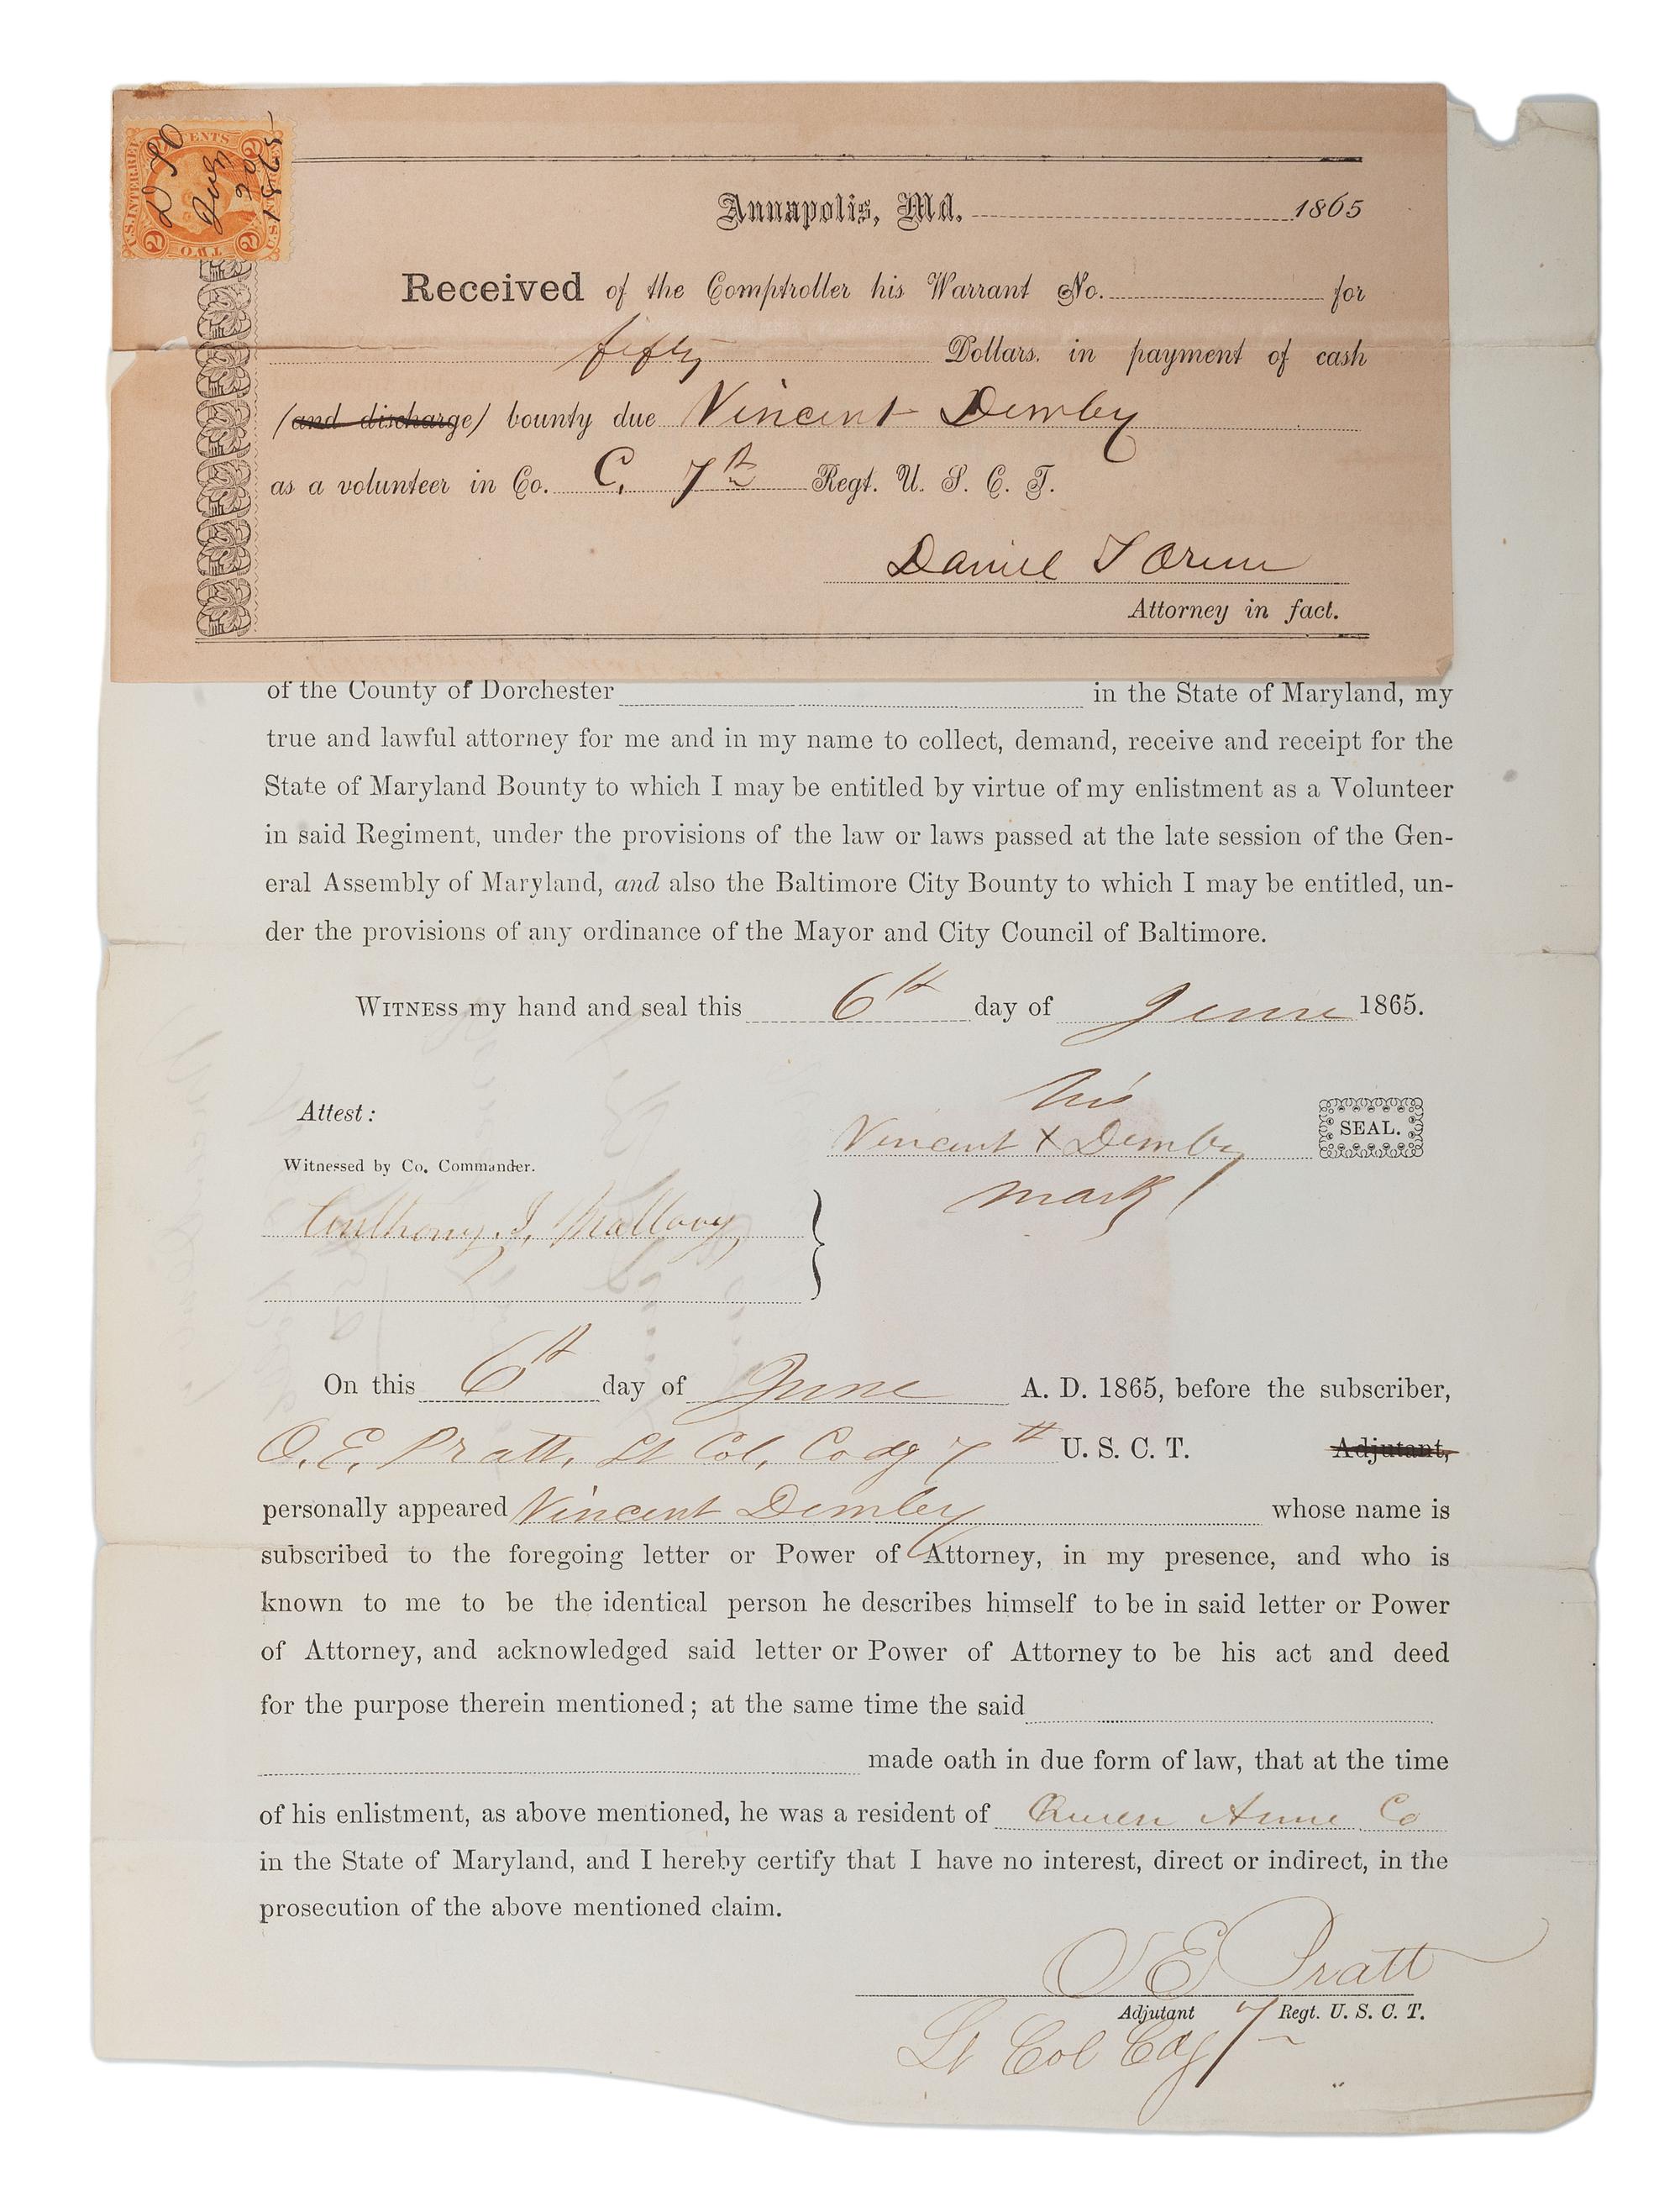 U.S. INTER. REV.
TWO CENTS
2 2
D T O
Aug
30
1865
Annapolis, Md. 1865
Received of the Comptroller his Warrant No. for
fifty Dollars, in payment of cash
(and discharge) bounty due Vincent Demby
as a volunteer in Co. C. 7th Regt. U. S. C. T.
Daniel T Orem
Attorney in fact.
of the County of Dorchester in the State of Maryland, my
true and lawful attorney for me and in my name to collect, demand, receive and receipt for the
State of Maryland Bounty to which I may be entitled by virtue of my enlistment as a Volunteer
in said Regiment, under the provisions of the law or laws passed at the late session of the Gen-
eral Assembly of Maryland, and also the Baltimore City Bounty to which I may be entitled, un-
der the provisions of any ordinance of the Mayor and City Council of Baltimore.
WITNESS my hand and seal this 6th day of June 1865.
his
Attest:
Vincent X Demby SEAL.
Witnessed by Co. Commander.
mark
Anthony J. Mallory
On this 6th day of June A. D. 1865, before the subscriber,
O. E. Pratt, Lt Col, Codg 7th U. S. C. T. Adjutant,
personally appeared Vincent Demby whose name is
subscribed to the foregoing letter or Power of Attorney, in my presence, and who is
known to me to be the identical person he describes himself to be in said letter or Power
of Attorney, and acknowledged said letter or Power of Attorney to be his act and deed
for the purpose therein mentioned; at the same time the said
made oath in due form of law, that at the time
of his enlistment, as above mentioned, he was a resident of Queen Anne Co
in the State of Maryland, and I hereby certify that I have no interest, direct or indirect, in the
prosecution of the above mentioned claim.
O E Pratt
Adjutant 7 Regt. U. S. C. T.
Lt Col Cdg